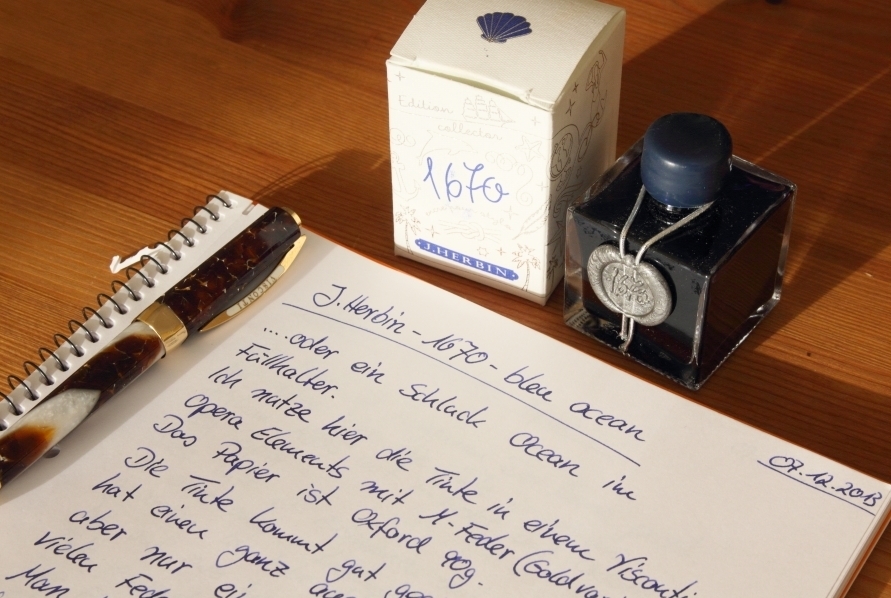 Edition
collector
1670
J.HERBIN
1670
VISCONTI
J. Herbin - 1670 - bleu ocean
07.12.2013
... oder ein Schluck Ocean im
Füllhalter.
Ich nutze hier die Tinte in einem Visconti
Opera Elements mit M-Feder (Gold
Das Papier ist Oxford 90g.
Die Tinte kommt gut
hat einen ganz
aber nur ein
vielen
Man